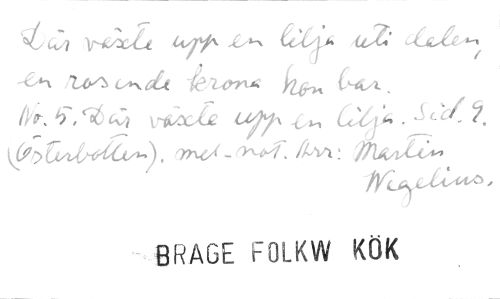 Där växte upp en lilja uti dalen,
en rosende krona hon bar.
No. 5. Där växte upp en lilja. Sid. 9.
(Österbotten). mel-not. Arr: Martin
Wegelius.
BRAGE FOLKW KÖK